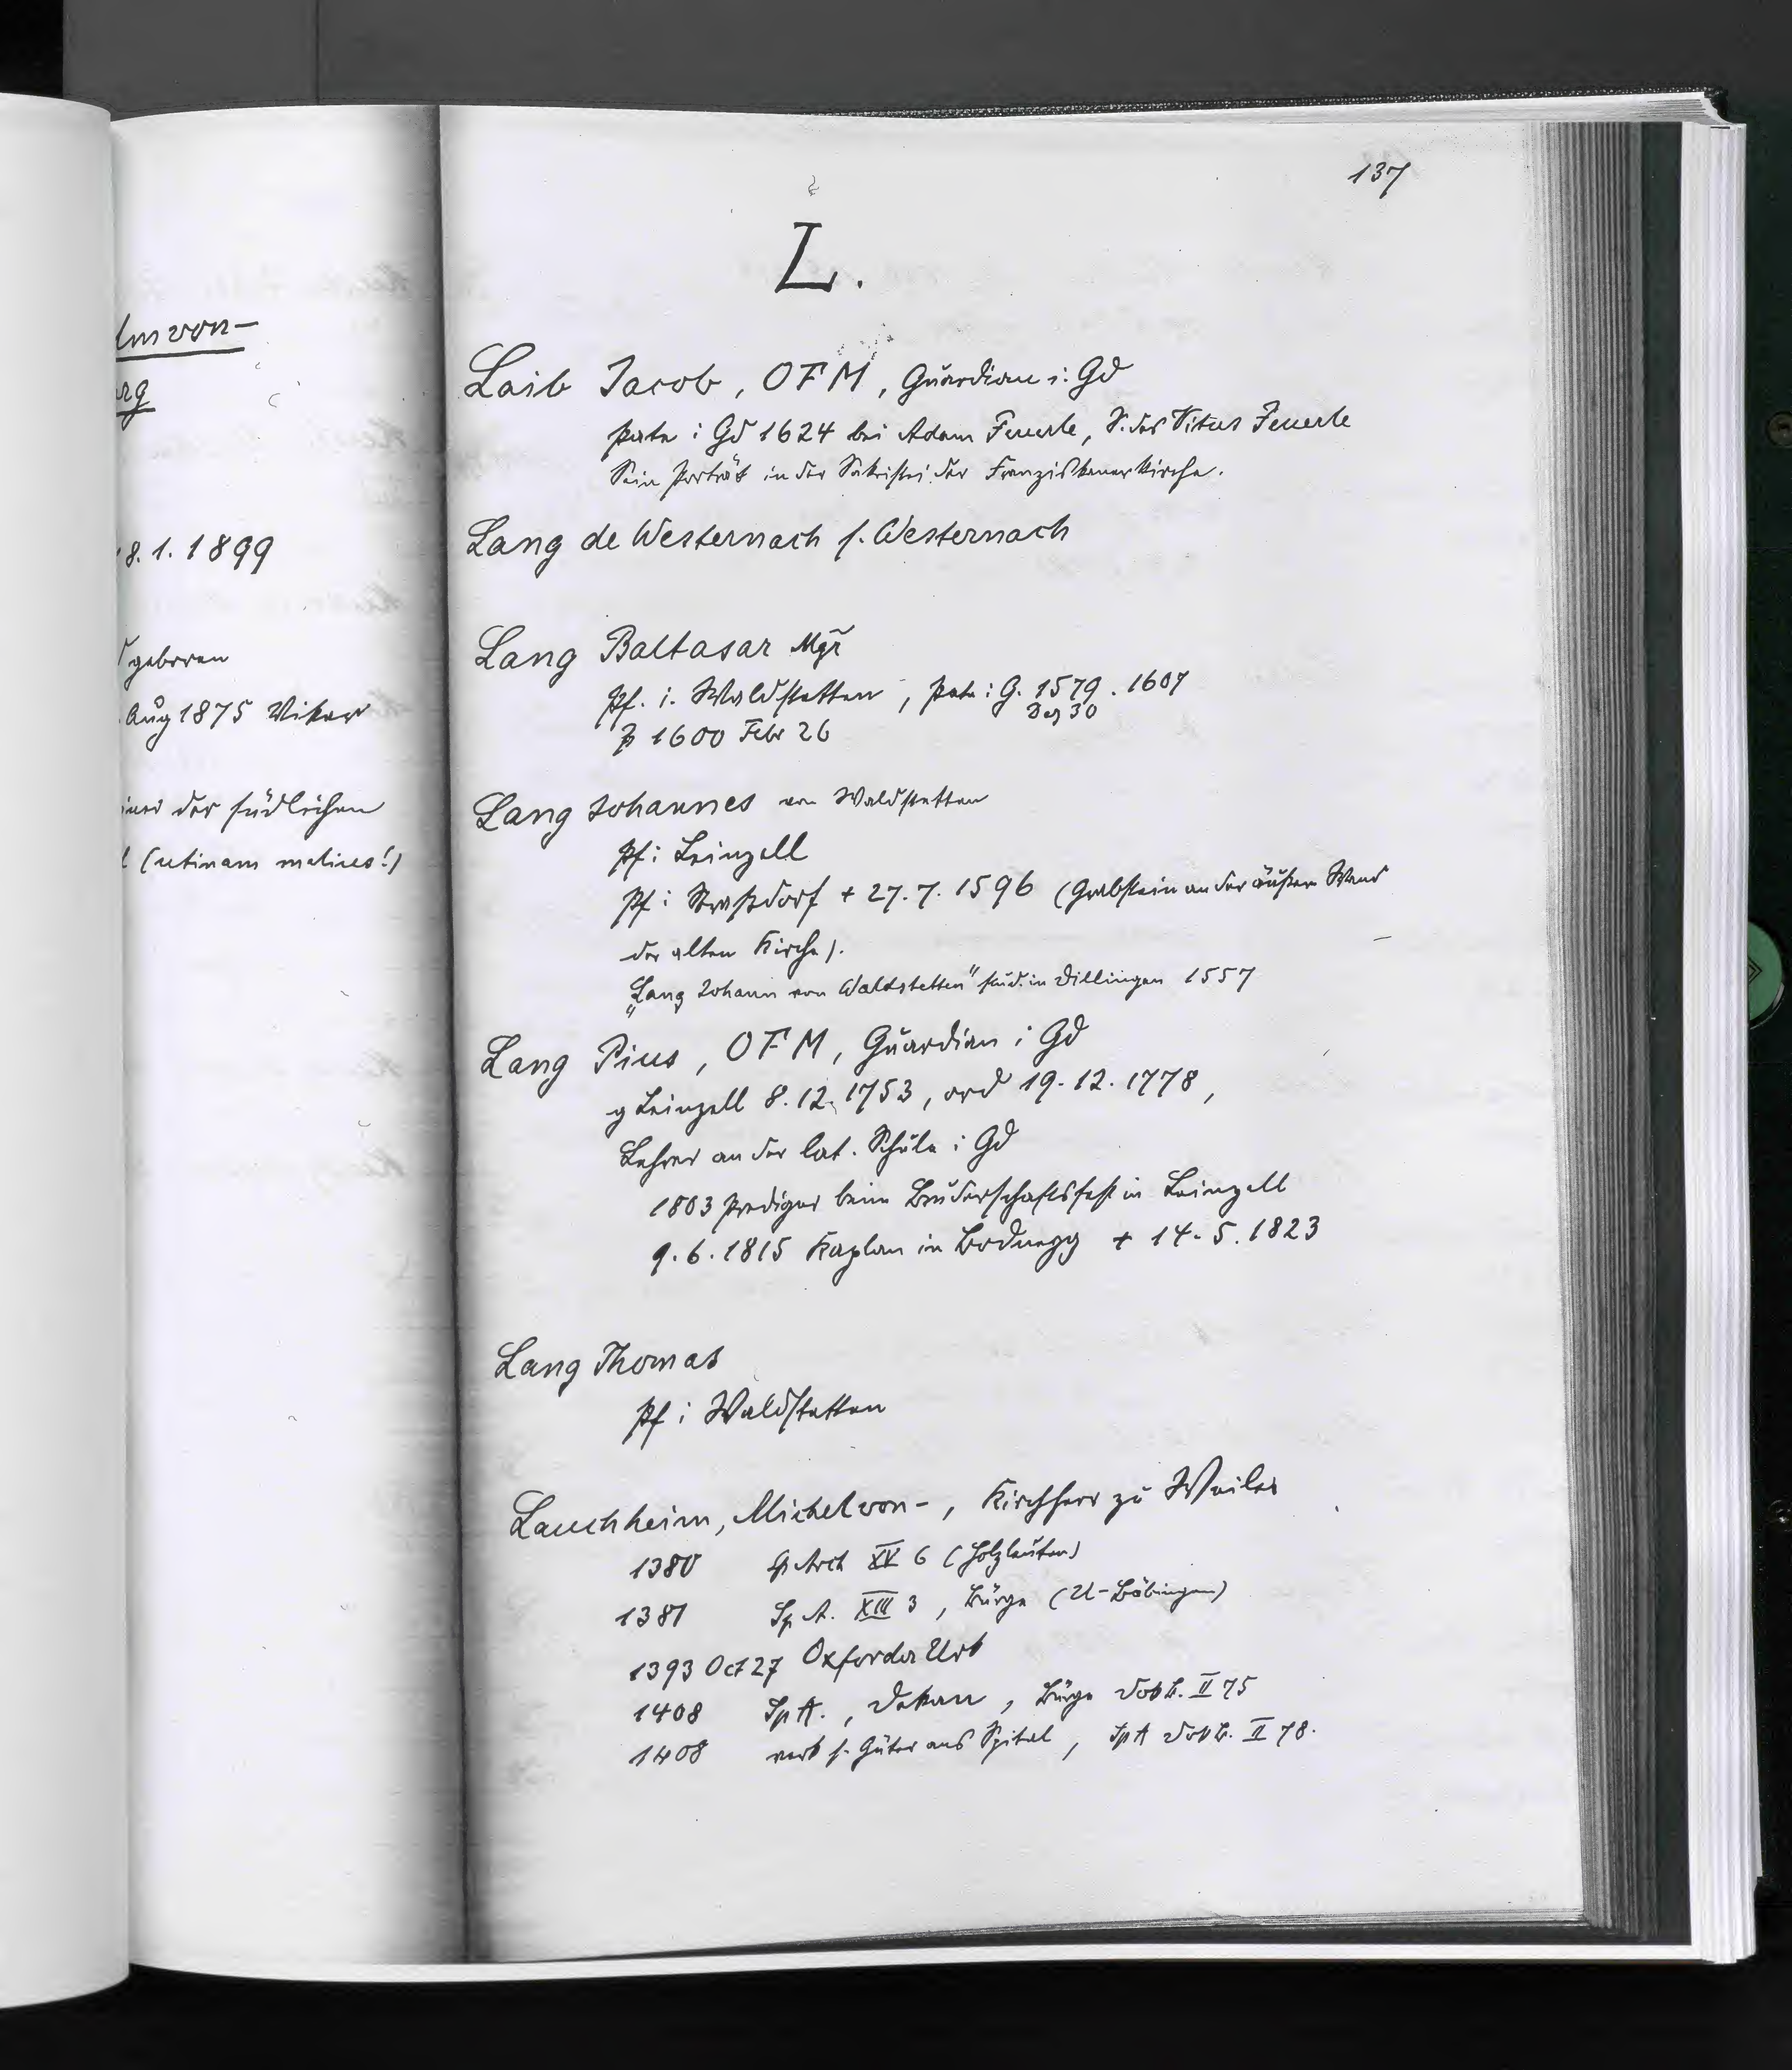 137
L.
lm von-
rg
8. 1. 1899
geboren
Aug 1875 Vikar
der südlichen
(utinam melius!)
Laib Jacob, OFM, Guardian i. Gd
Pate i Gd 1624 bei Adam Feuerle, S. des Vitus Feuerle
Sein Porträt in der Sakristei der Franziskanerkirche.
Lang de Westernach s. Westernach
Lang Baltasar Mgr
Pf. i. Waldstetten, Pate i G. 1579. 1607
Dez 30
1600 Febr 26
Lang Johannes von Waldstetten
Pf i Leinzell
Pf i Straßdorf + 27. 7. 1596 (Grabstein an der äußern Wand
der alten Kirche).
„Lang Johann von Waldstetten" stud. in Dillingen 1557
Lang Pius, OFM, Guardian i Gd
g Leinzell 8. 12. 1753, ord 19. 12. 1778,
Lehrer an der lat. Schule i Gd
1803 Prediger beim Bruderschaftsfest in Leinzell
9. 6. 1815 Kaplan in Bodnegg + 14. 5. 1823
Lang Thomas
Pf i Waldstetten
Lauchheim, Michel von -, Kirchherr zu Weiler
1380 Sp Arch XV 6 (Holzleuten)
1381 Sp A. XIII 3, Bürge (U-Böbingen)
1393 Oct 27 Oxforder Urk
1408 Sp A., Dekan, Bürge II 75
1408 verk s. Güter ans Spital, Sp A II 78.